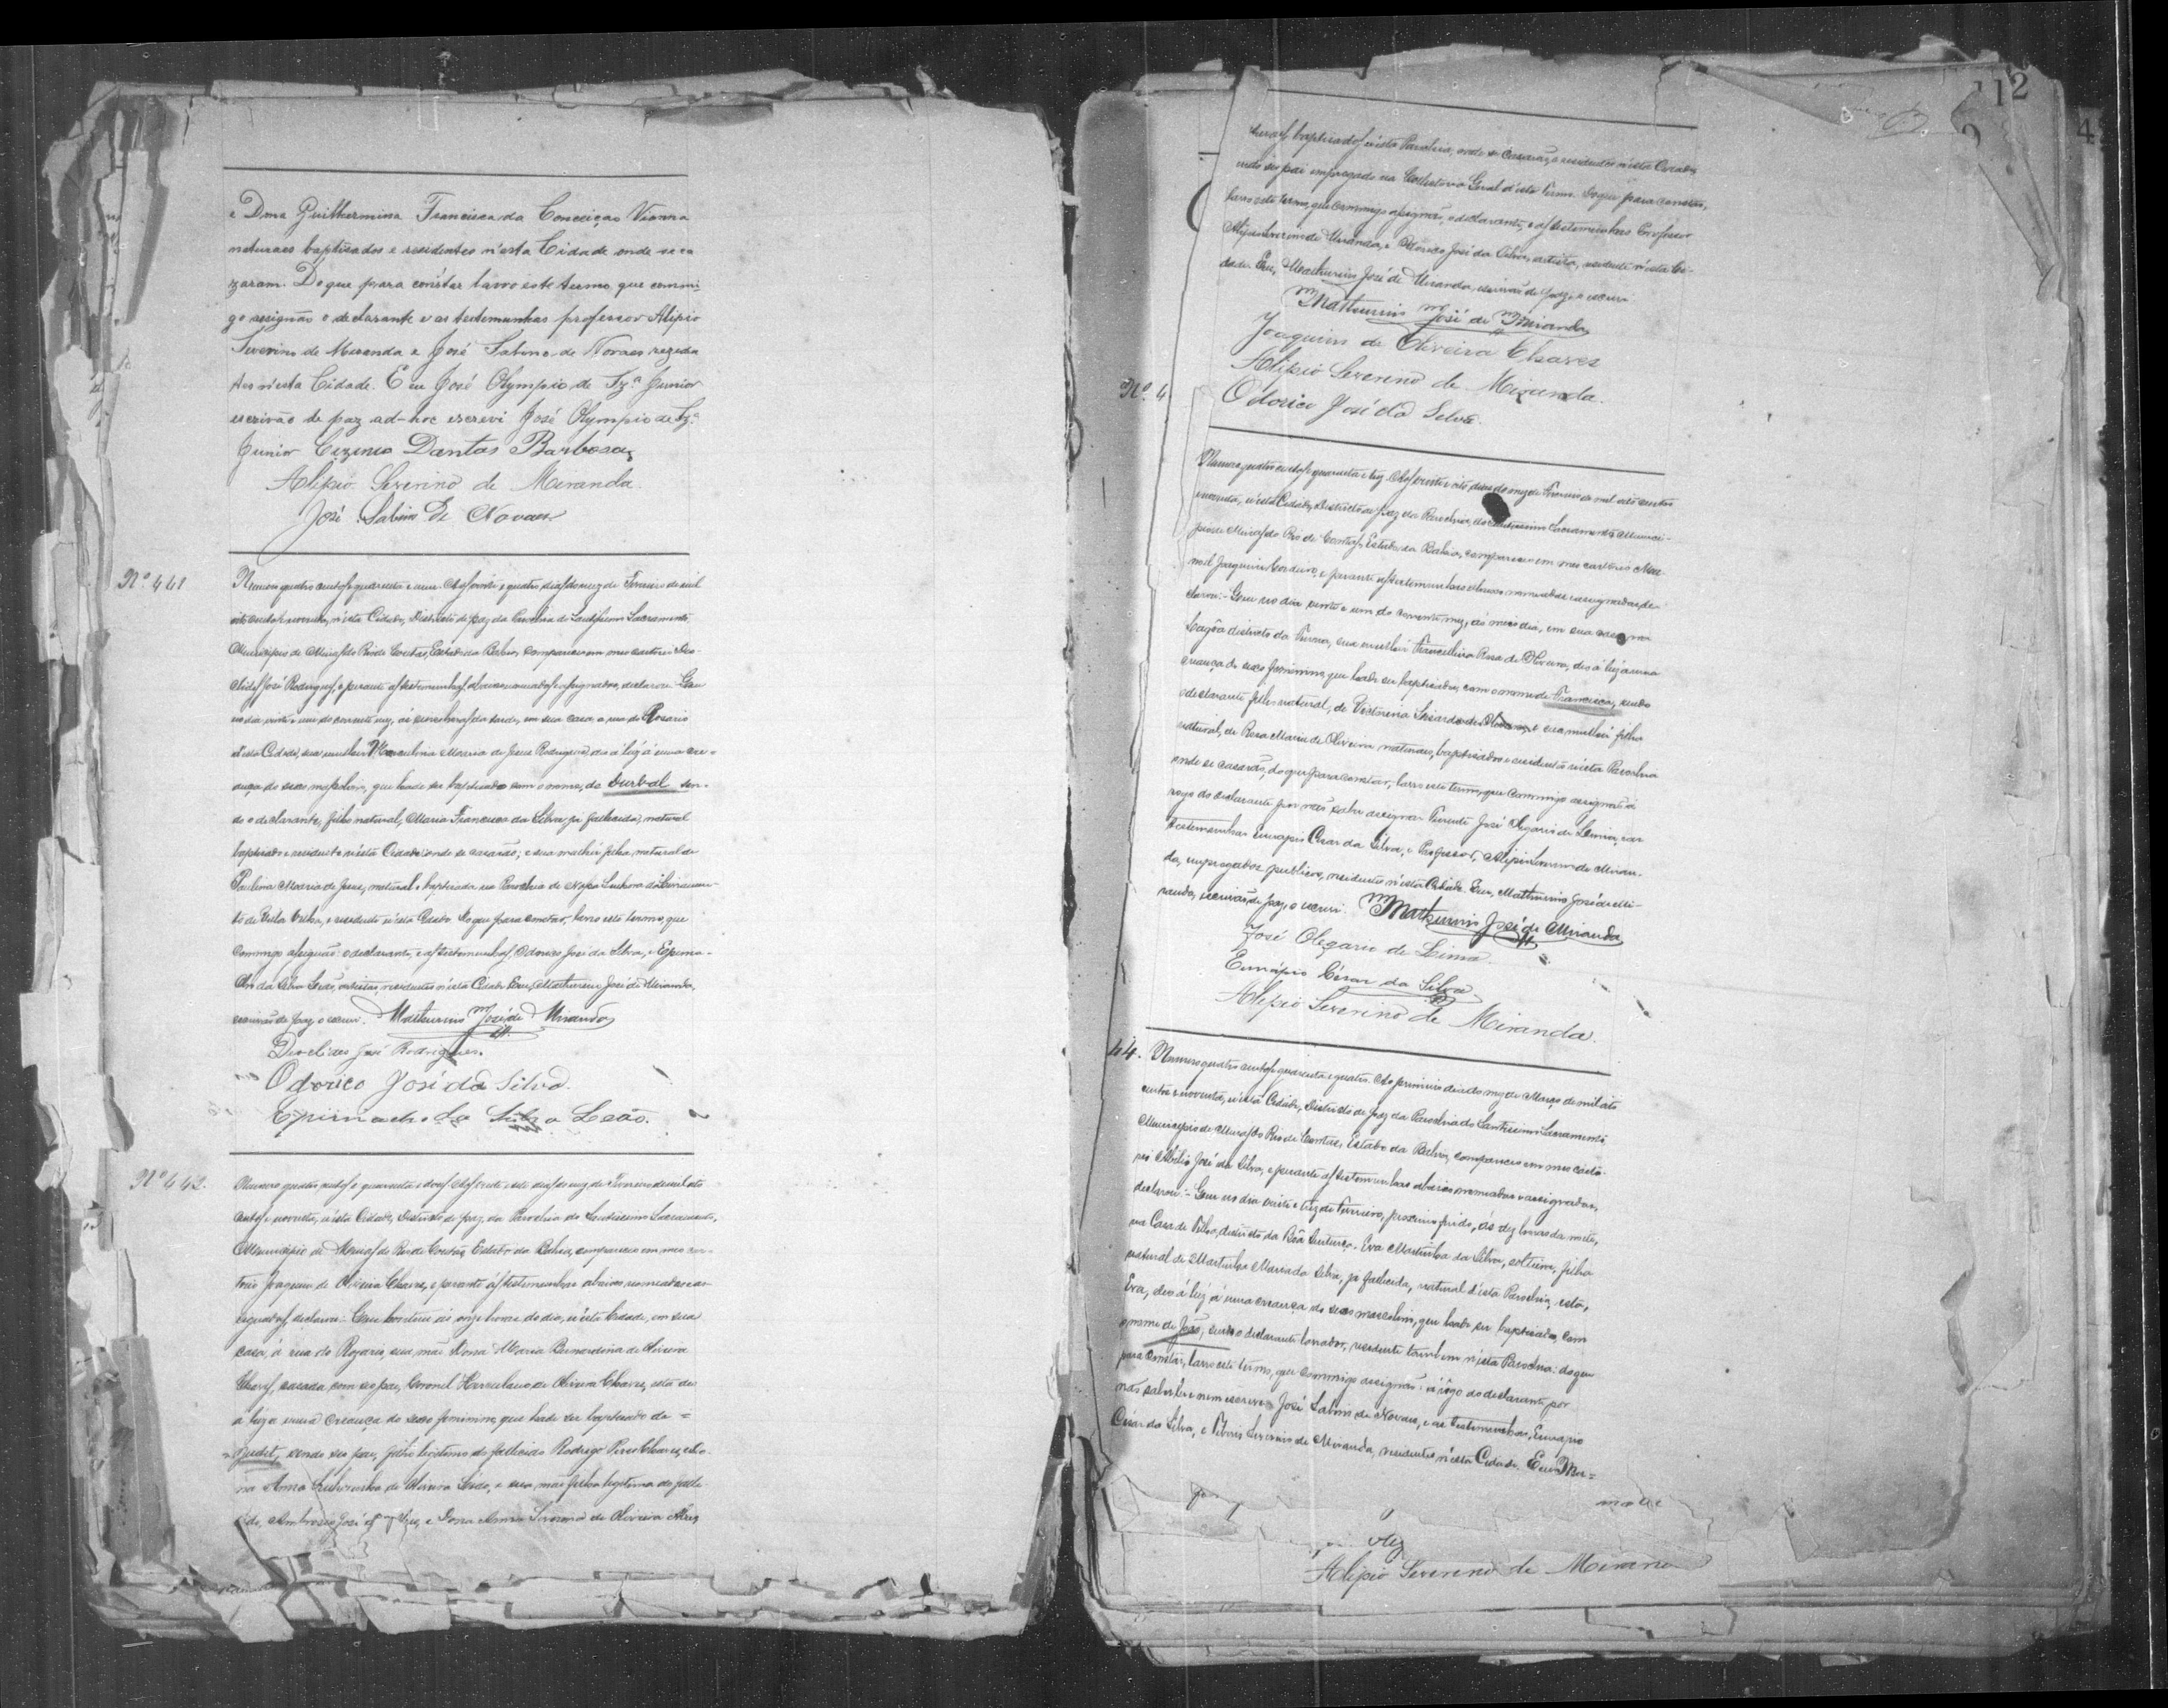 e Dma Guilhermina Francisca da Conceiçao Vianna
naturaes baptisados e residentes n'esta Cidade onde se ca
zaram. Do que para constar lavro este termo que commi-
go assignão o declarante e as testemunhas professor Alipio
Severino de Miranda e José Sabino de Novaes rezeden
tes n'esta Cidade. E eu José Olympio de Fz.ª Junior
escrivão de paz ad-hoc escrevi José Olympio de Fz.ª
Junior Dantas Barbosa
Alipio Severino de Miranda.
José Sabino de Novaes
Nº 441
Numero quatro centos e quarenta e um. Aos vinte e quatro dias do mez de Fevereiro de mil
oito centos e noventa, n'esta Cidade, Districto de paz da Parochia do Santissimo Sacramento,
Municipio de Minas do Rio de Contas, Estado da Bahia, compareceo em meo cartorio Deo-
clides José Rodrigues, e perante as testemunhas abaixo nomeadas e assignados, declarou: Que
no dia vinte e um do corrente mez, ás horas da tarde, em sua casa, a rua do Rosario
d'esta Cidade, sua mulher Maria de Jesus Rodrigues, deo á luz á uma cre-
ança do sexo masculino, que hade ser baptisado com o nome, de Durval, sen-
do o declarante, filho natural, Maria Francisca da Silva, ja fallecida, natural
baptisado e residente n'esta Cidade onde se casarão; e sua mulher filha natural de
Paulina Maria de Jesus, natural e baptisada na Parochia de Nossa Senhora do Livramen-
to de Villa Velha, e residente n'esta Cidade. Do que para constar, lavro este termo, que
commigo assignão o declarante, e as testemunhas, Odorico José da Silva, e Epima-
cho da Silva Leão, artistas, residentes n'esta Cidade. Eu, Mathurino José de Miranda,
escrivão de paz, o escrevi. Mathurino José de Miranda
Deoclides José Rodrigues.
Odorico José da Silva.
Epimacho da Silva Leão.
Nº 442.
Numero quatro centos e quarenta e dous. Aos vinte e sete dias do mez de Fevereiro de mil oito
centos e noventa, n'esta Cidade, Districto de paz, da Parochia do Santissimo Sacramento,
Municipio de Minas do Rio de Contas, Estado da Bahia, compareceo em meo car-
torio Joaquim de Oliveira Chaves, e perante ás testemunhas abaixo nomeadas e as-
signados, declarou: Que hontem ás onze horas do dia, n'esta Cidade, em sua
casa, á rua do Rozario, sua mãi Dona Maria Bernardina de Oliveira
Chaves, casada com seo pai, Coronel Herculano de Oliveira Chaves, esta deo
á luz a uma creança do sexo feminino, que hade ser baptisado de =
Judit, sendo seo pai, filho legitimo do fallecido Rodrigo Chaves, e Do-
na Anna de Oliveira e sua mãi filha legitima do falle-
cido, Ambrosio José Alves, e Dona Anna de Oliveira Alves
112
turaes, baptisados n'esta Parochia, onde se casarão, e residentes n'esta Cidade,
sendo seo pai empregado na Collectoria Geral d'este Termo. Do que para constar,
lavro este termo, que commigo assignão, o declarante, e as testemunhas Professor
Alipio Severino de Miranda, e Odorico José da Silva, artista, residente n'esta Ci-
dade. Eu, Mathurino José de Miranda, escrivão de paz, o escrevi.
Mathurino José de Miranda
Joaquim de Oliveira Chaves
Alipio Severino de Miranda.
Odorico José da Silva.
Nº. 4
Numero quatro centos e quarenta e trez. Aos vinte e oito dias do mez de Fevereiro de mil oito centos
e noventa, n'esta Cidade, Districto de paz da Parochia, do Santissimo Sacramento, Munici-
pio de Minas do Rio de Contas, Estado da Bahia, compareceo em meo cartorio Ma-
noel Joaquim Cordeiro, e perante as testemunhas abaixo nomeadas e assignadas, de-
clarou: - Que no dia vinte e um do corrente mez, ás meio dia, em sua casa na
Lagôa districto da Furna, sua mulher Francellina Rosa de Oliveira, deo á luz á uma
creança do sexo feminino, que hade ser baptisada, com o nome de Francisca, sendo
o declarante filho natural, de Victorina e sua mulher filha
natural, de Rosa Maria de Oliveira naturaes, baptisados e residentes n'esta Parochia
onde se casarão, do que para constar, lavro este termo, que commigo assignão á
rogo do declarante por não saber assignar Tenente José Olegario de Lima, e as
testemunhas Eunapio Cesar da Silva, e Professor, Alipio Severino de Miran-
da, empregados publicos, residentes n'esta Cidade. Eu, Mathurino José de Mi-
randa, escrivão de paz, o escrevi. Mathurino José de Miranda
José Olegario de Lima.
Eunápio César da Silva
Alipio Severino de Miranda.
44.
Numero quatro centos e quarenta e quatro. Ao primeiro dia do mez de Março de mil oito
centos e noventa, n'esta Cidade, Districto de paz da Parochia do Santissimo Sacramento
Municipio de Minas do Rio de Contas, Estado da Bahia, compareceo em meo carto-
rio Abilio José da Silva, e perante as testemunhas abaixo nomeadas e assignadas,
declarou: - Que no dia vinte e trez de Fevereiro, proximo findo, ás dez horas da noite,
na Casa de Telha, districto da Bôa Sentença, Eva Martinha da Silva, solteira, filha
natural de Martinha Maria da Silva, já fallecida, natural d'esta Parochia, esta,
Eva, deo á luz á uma creança do sexo masculino, que hade ser baptisado, com
o nome de João, sendo o declarante lavrador, residente tambem n'esta Parochia: do que
para constar, lavro este termo, que commigo assignão: á rôgo do declarante por
não saber ler e nem escrever José Sabino de Novaes, e as testemunhas, Eunapio
Cesar da Silva, e Severino de Miranda, residentes n'esta Cidade. Eu Ma-
Alipio Severino de Miran